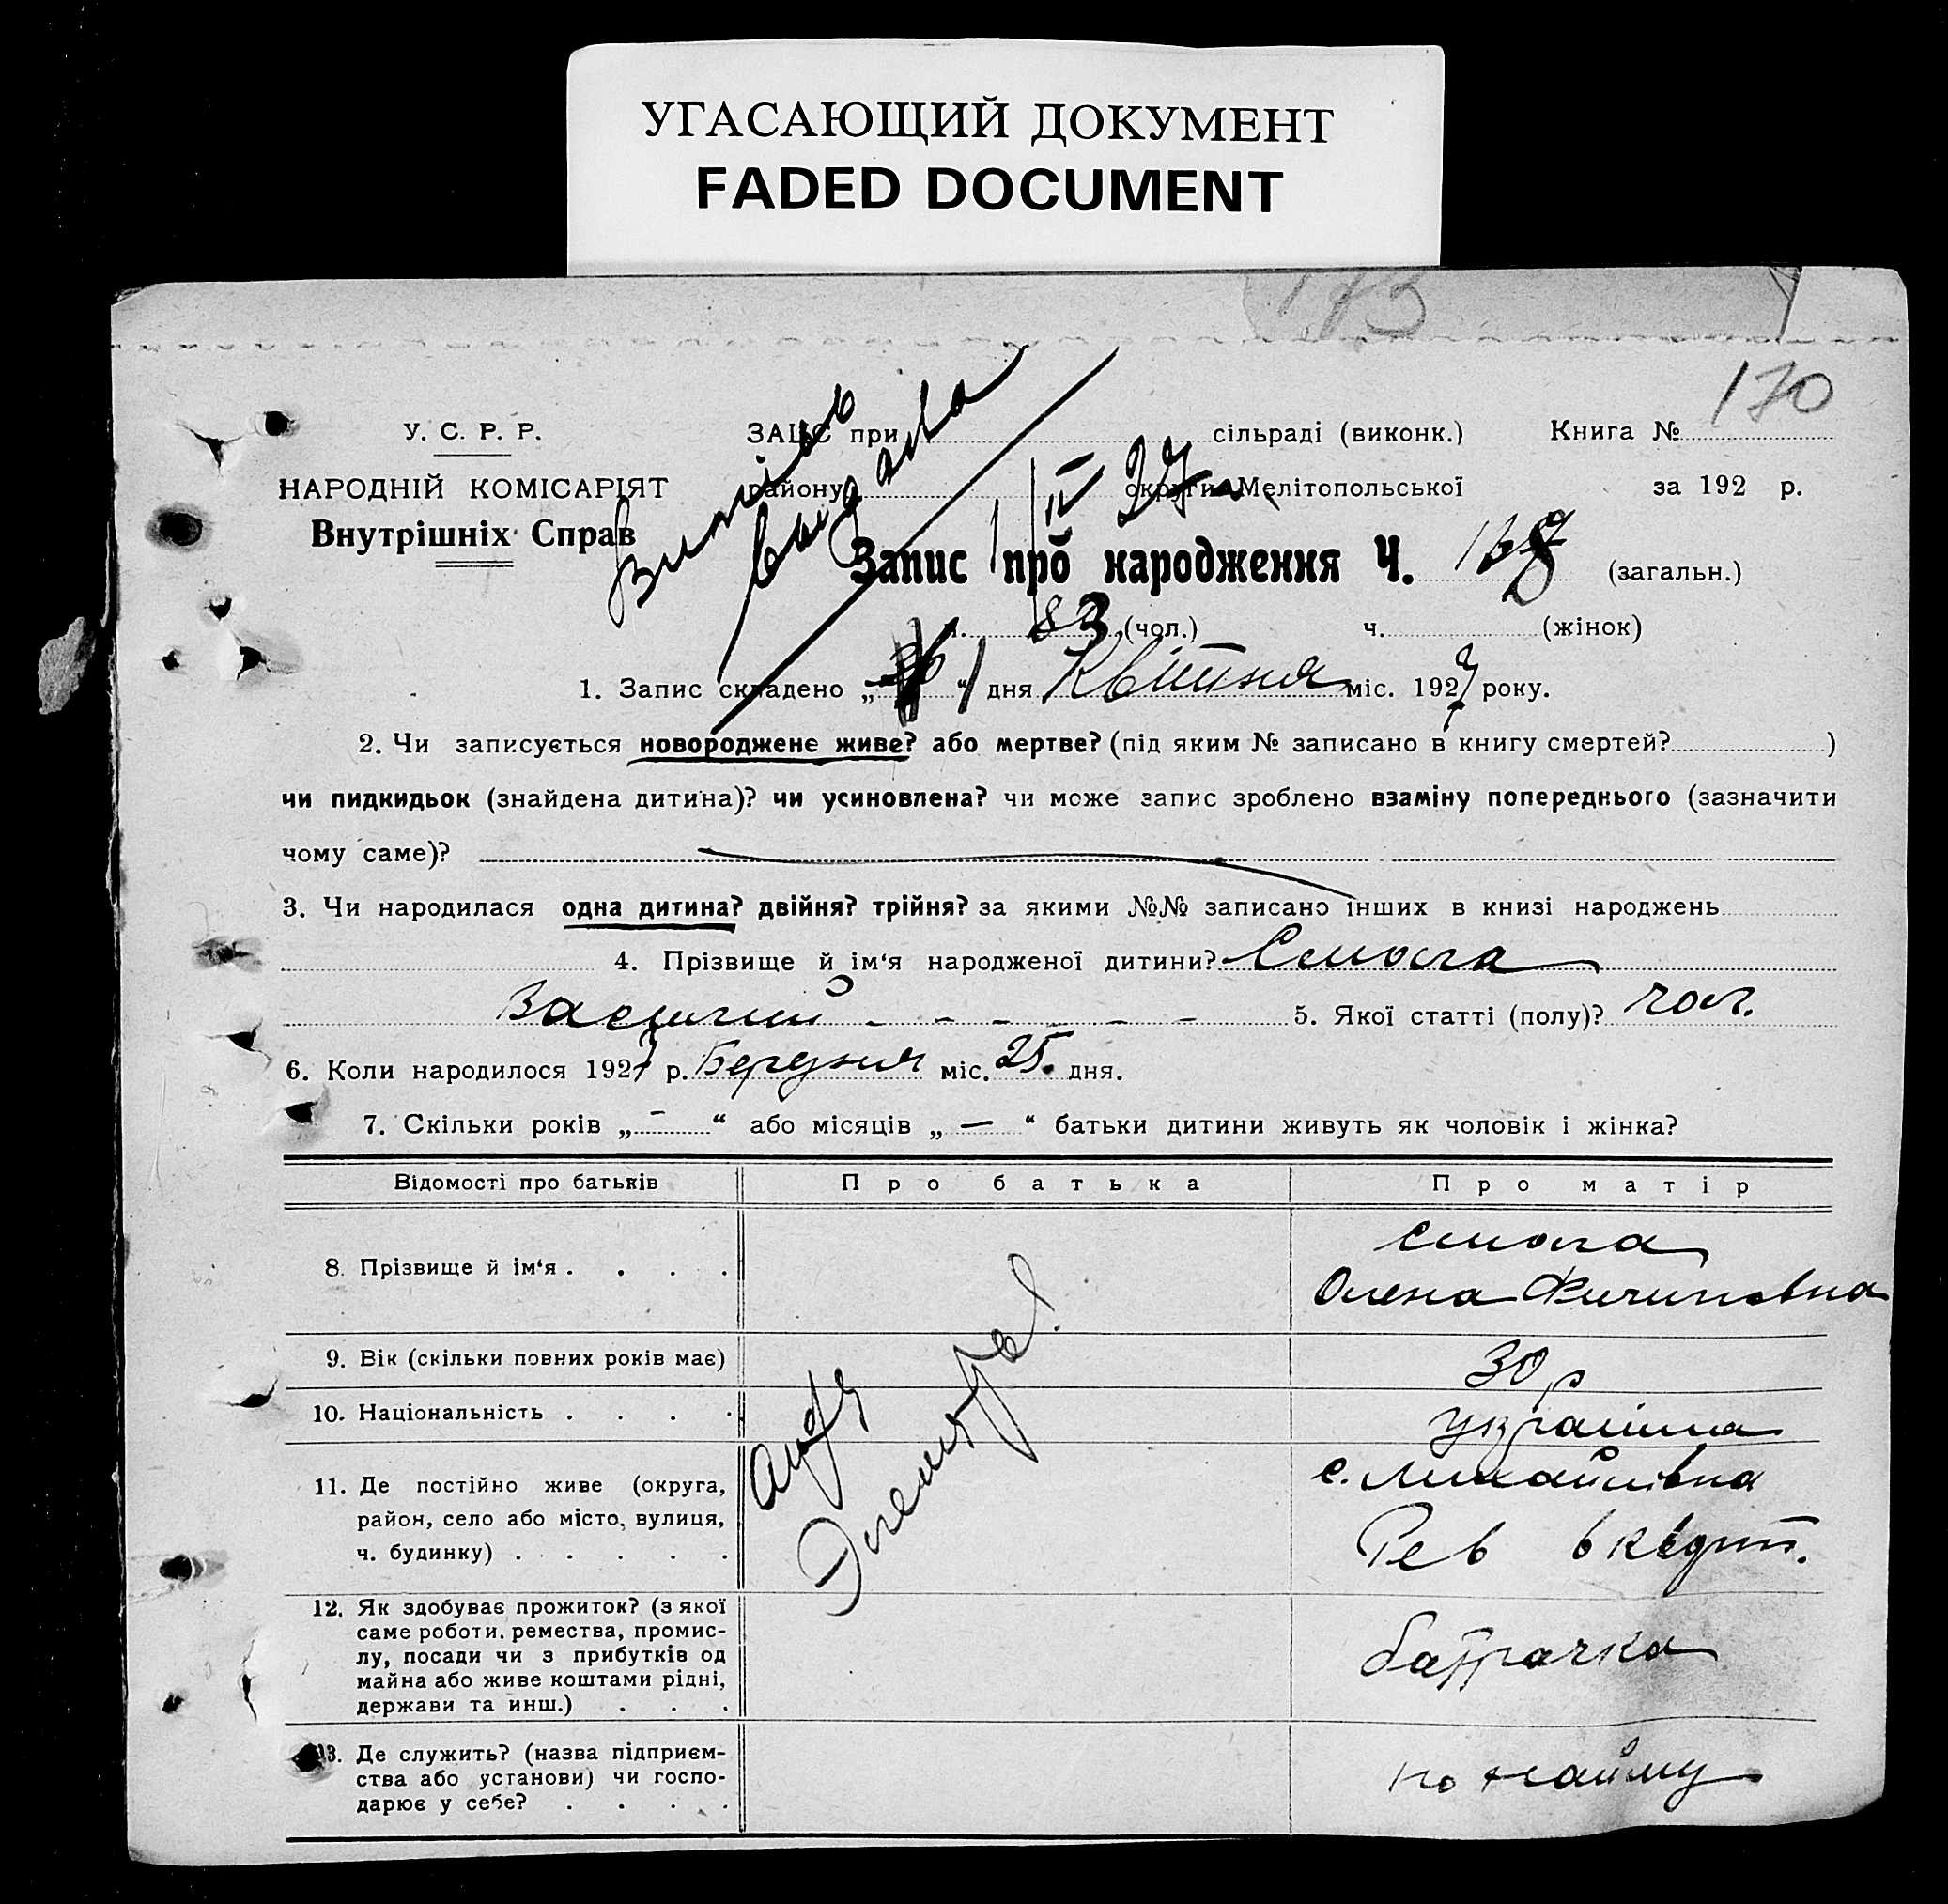 УГАСАЮЩИЙ ДОКУМЕНТ
FADED DOCUMENT
173
170
У. С. Р. Р.
НАРОДНІЙ КОМІСАРІЯТ
Внутрішніх Справ
Витяг
видана
1/IV 27
ЗАЦС при сільраді (виконк.) Книга №
району округи Мелітопольської за 192 р.
Запис про народження Ч. (загальн.)
ч. 83 (чол.) ч. (жінок)
1. Запис складено „ 1 “ дня Квітня міс. 1927 року.
2. Чи записується новороджене живе? або мертве? (під яким № записано в книгу смертей? )
чи пидкидьок (знайдена дитина)? чи усиновлена? чи може запис зроблено взаміну попереднього (зазначити
чому саме)?
3. Чи народилася одна дитина? двійня? трійня? за якими №№ записано інших в книзі народжень
4. Прізвище й ім‘я народженої дитини? Смола
Василий - - - - - - 5. Якої статті (полу)? чол.
6. Коли народилося 1927 р. Березня міс. 25. дня.
7. Скільки років „ — “ або місяців „ — “ батьки дитини живуть як чоловік і жінка?
Відомості про батьків Про батька Про матір
8. Прізвище й ім‘я . . . . Смола
Олена Филиповна
9. Вік (скільки повних років має) 30 р
10. Національність . . . . Українка
11. Де постійно живе (округа,
район, село або місто, вулиця,
ч. будинку) . . . . . с. Михайлівка
Рев
12. Як здобуває прожиток? (з якої
саме роботи, ремества, промис-
лу, посади чи з прибутків од
майна або живе коштами рідні,
держави та инш.) . . . батрачка
13. Де служить? (назва підприєм-
ства або установи) чи госпо-
дарює у себе? . . . . по найму